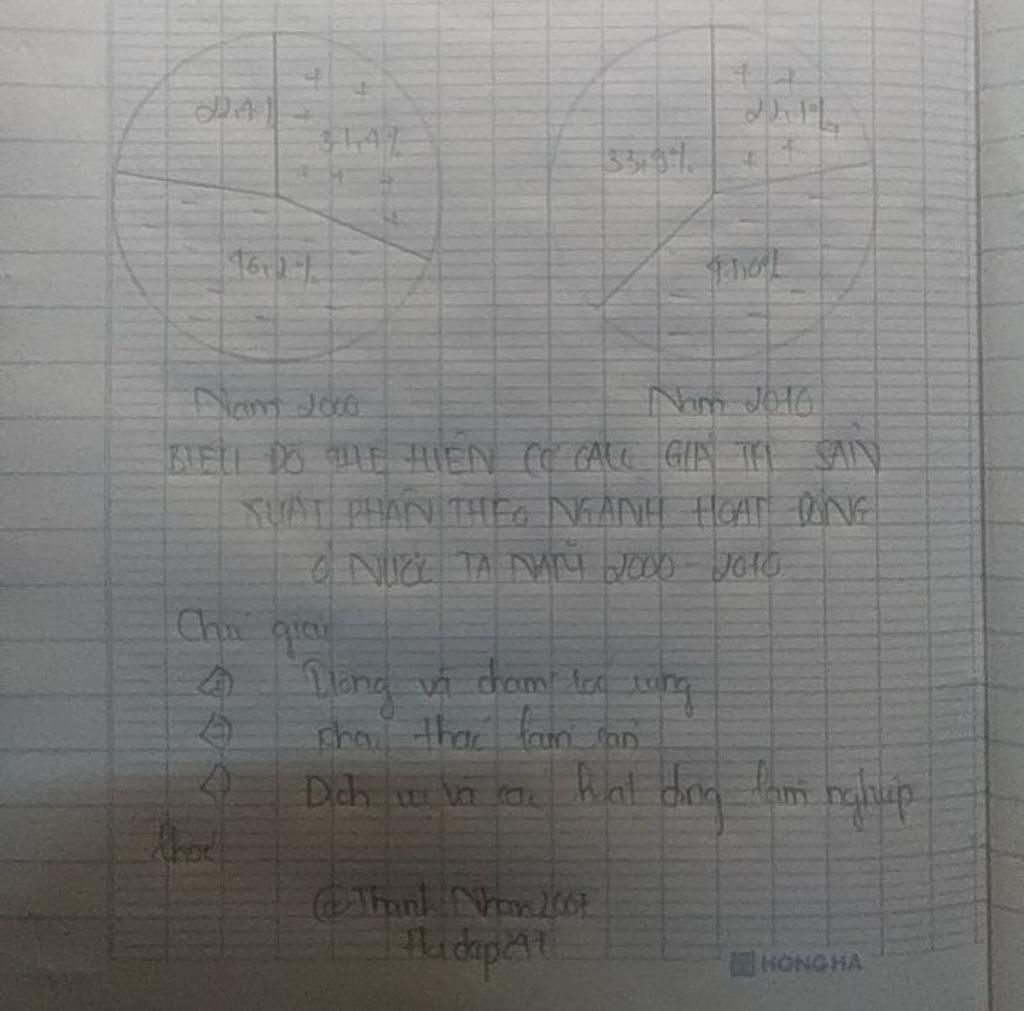 22,4%
31,4%
46,2%
33,9%
22,1%
Năm 2000
Năm 2010
BIỂU ĐỒ THỂ HIỆN CƠ CẤU GIÁ TRỊ SẢN
XUẤT PHÂN THEO NGÀNH HOẠT ĐỘNG
Ở NƯỚC TA NĂM 2000 - 2010
Chú giải
Trồng và chăm sóc rừng
Khai thác lâm sản
Dịch vụ và các hoạt động lâm nghiệp
khác
@Thanh Nhan2007
Hoidap247
HONG HA